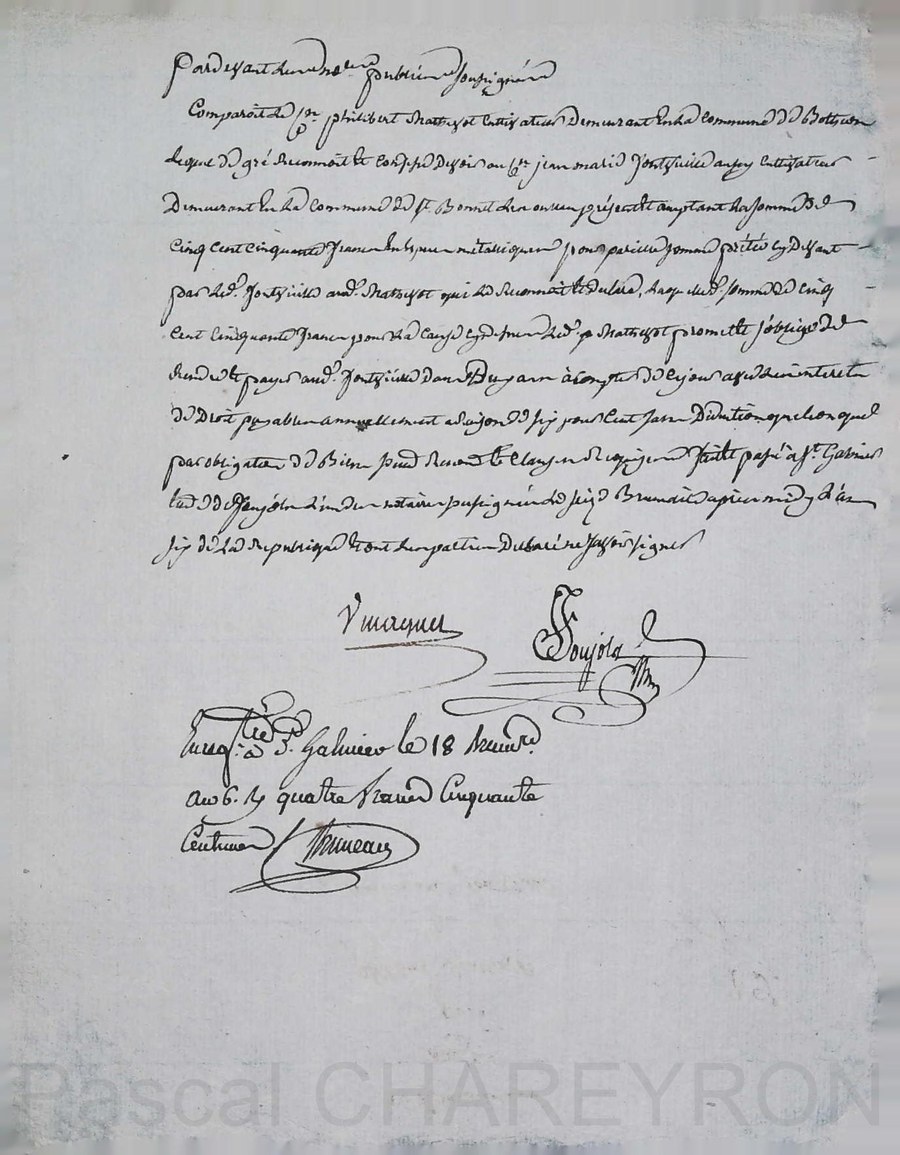 Pardevant les notaires publics soussignés
Comparoit le cen philibert Mathevot Cultivateur Demeurant En la Commune de Bothéon
lequel de gré Reconnoit et Confesse Devoir au cen jean marie fontvieille aussy Cultivateur
Demeurant En la Commune de st Bonnet les oulles présent et acceptant la somme de
Cinq Cent Cinquante francs En Espèces métalliques pour pareille somme prêtée cy Devant
par led. fontvieille aud. Mathevot qui le Reconnoit et déclare, laquelle d. somme de Cinq
Cent Cinquante francs pour la Cause cy dessus led. Mathevot promet et s'oblige de
Rendre et payer aud. fontvieille Dans Deux ans à Compter de ce jour avec les interets
de Droit payables annuellement à raison de six pour Cent sans Diminution quelconque
par obligation de Biens Renoncé Clauses fait et passé à st. Galmier
Etude de foujols l'un des notaires soussignés le six Brumaire après midy l'an
six de la République et ont les parties Déclaré ne savoir signer
Vmagnet
Foujols
Nre
Enregtré à St. Galmier le 18 Brumre.
an 6. R quatre francs Cinquante
Centimes Bruneau
Pascal CHAREYRON